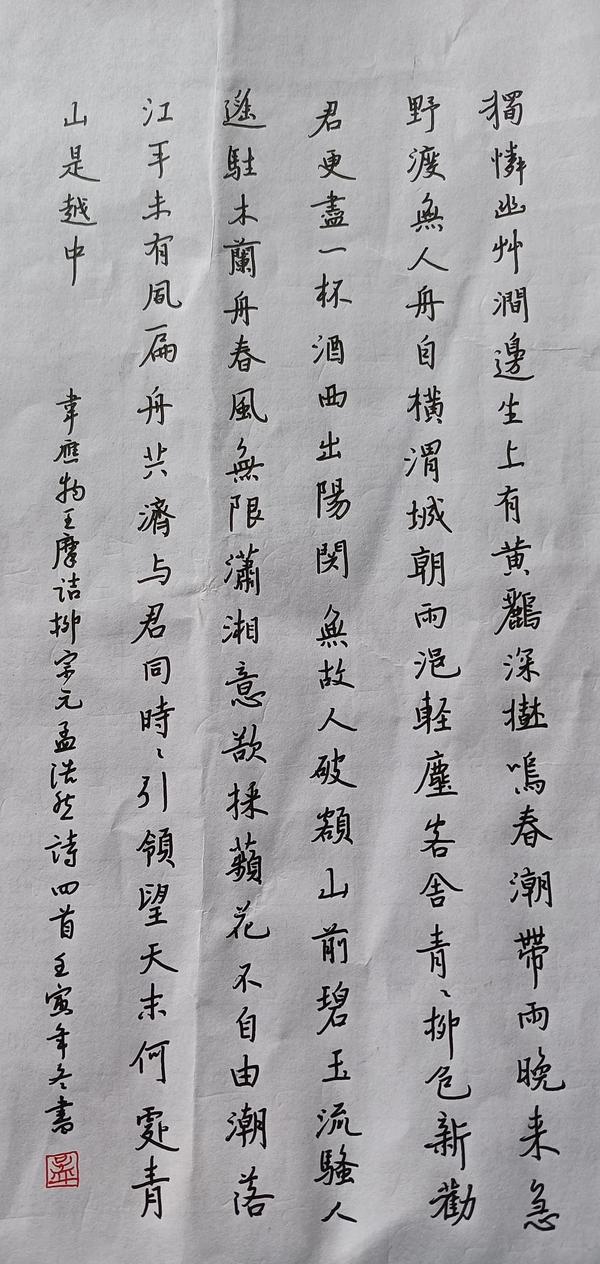 獨憐幽艸澗邊生上有黄鸝深樹鳴春潮帶雨晚来急
野渡無人舟自横渭城朝雨浥軽塵客舍青〻柳色新勸
君更盡一杯酒西出陽関無故人破額山前碧玉流騷人
遥駐木蘭舟春風無限瀟湘意欲採蘋花不自由潮落
江平未有風扁舟共濟与君同時〻引領望天末何處青
山是越中
韋應物王摩詰柳宗元孟浩然詩四首壬寅年冬書
孟